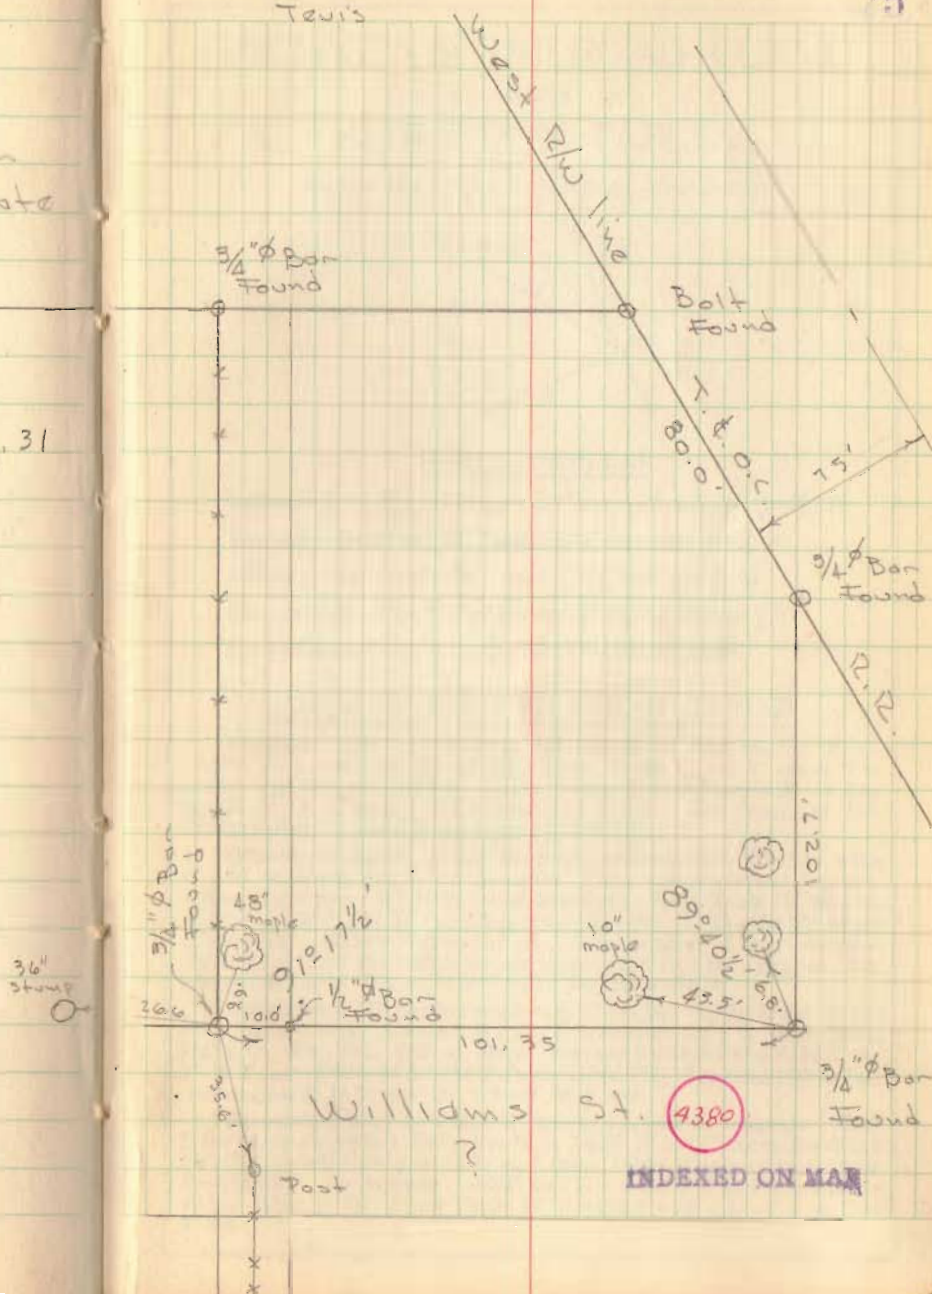 Tevis
West R/W line
3/4"Ø Bar
Found
Bolt
Found
. 31
T. & O. C.
80.0'
75'
3/4"Ø Bar
Found
R. R.
102.7'
3/4"Ø Bar
Found
48"
maple
91°17 1/2'
10"
maple
89°40 1/2'
36"
Stump
26.6
10.0'
1/2"Ø Bar
Found
43.5'
6.8'
101.35
35.6'
3/4"Ø Bar
Found
Williams St.
4380
?
Post
INDEXED ON MAP